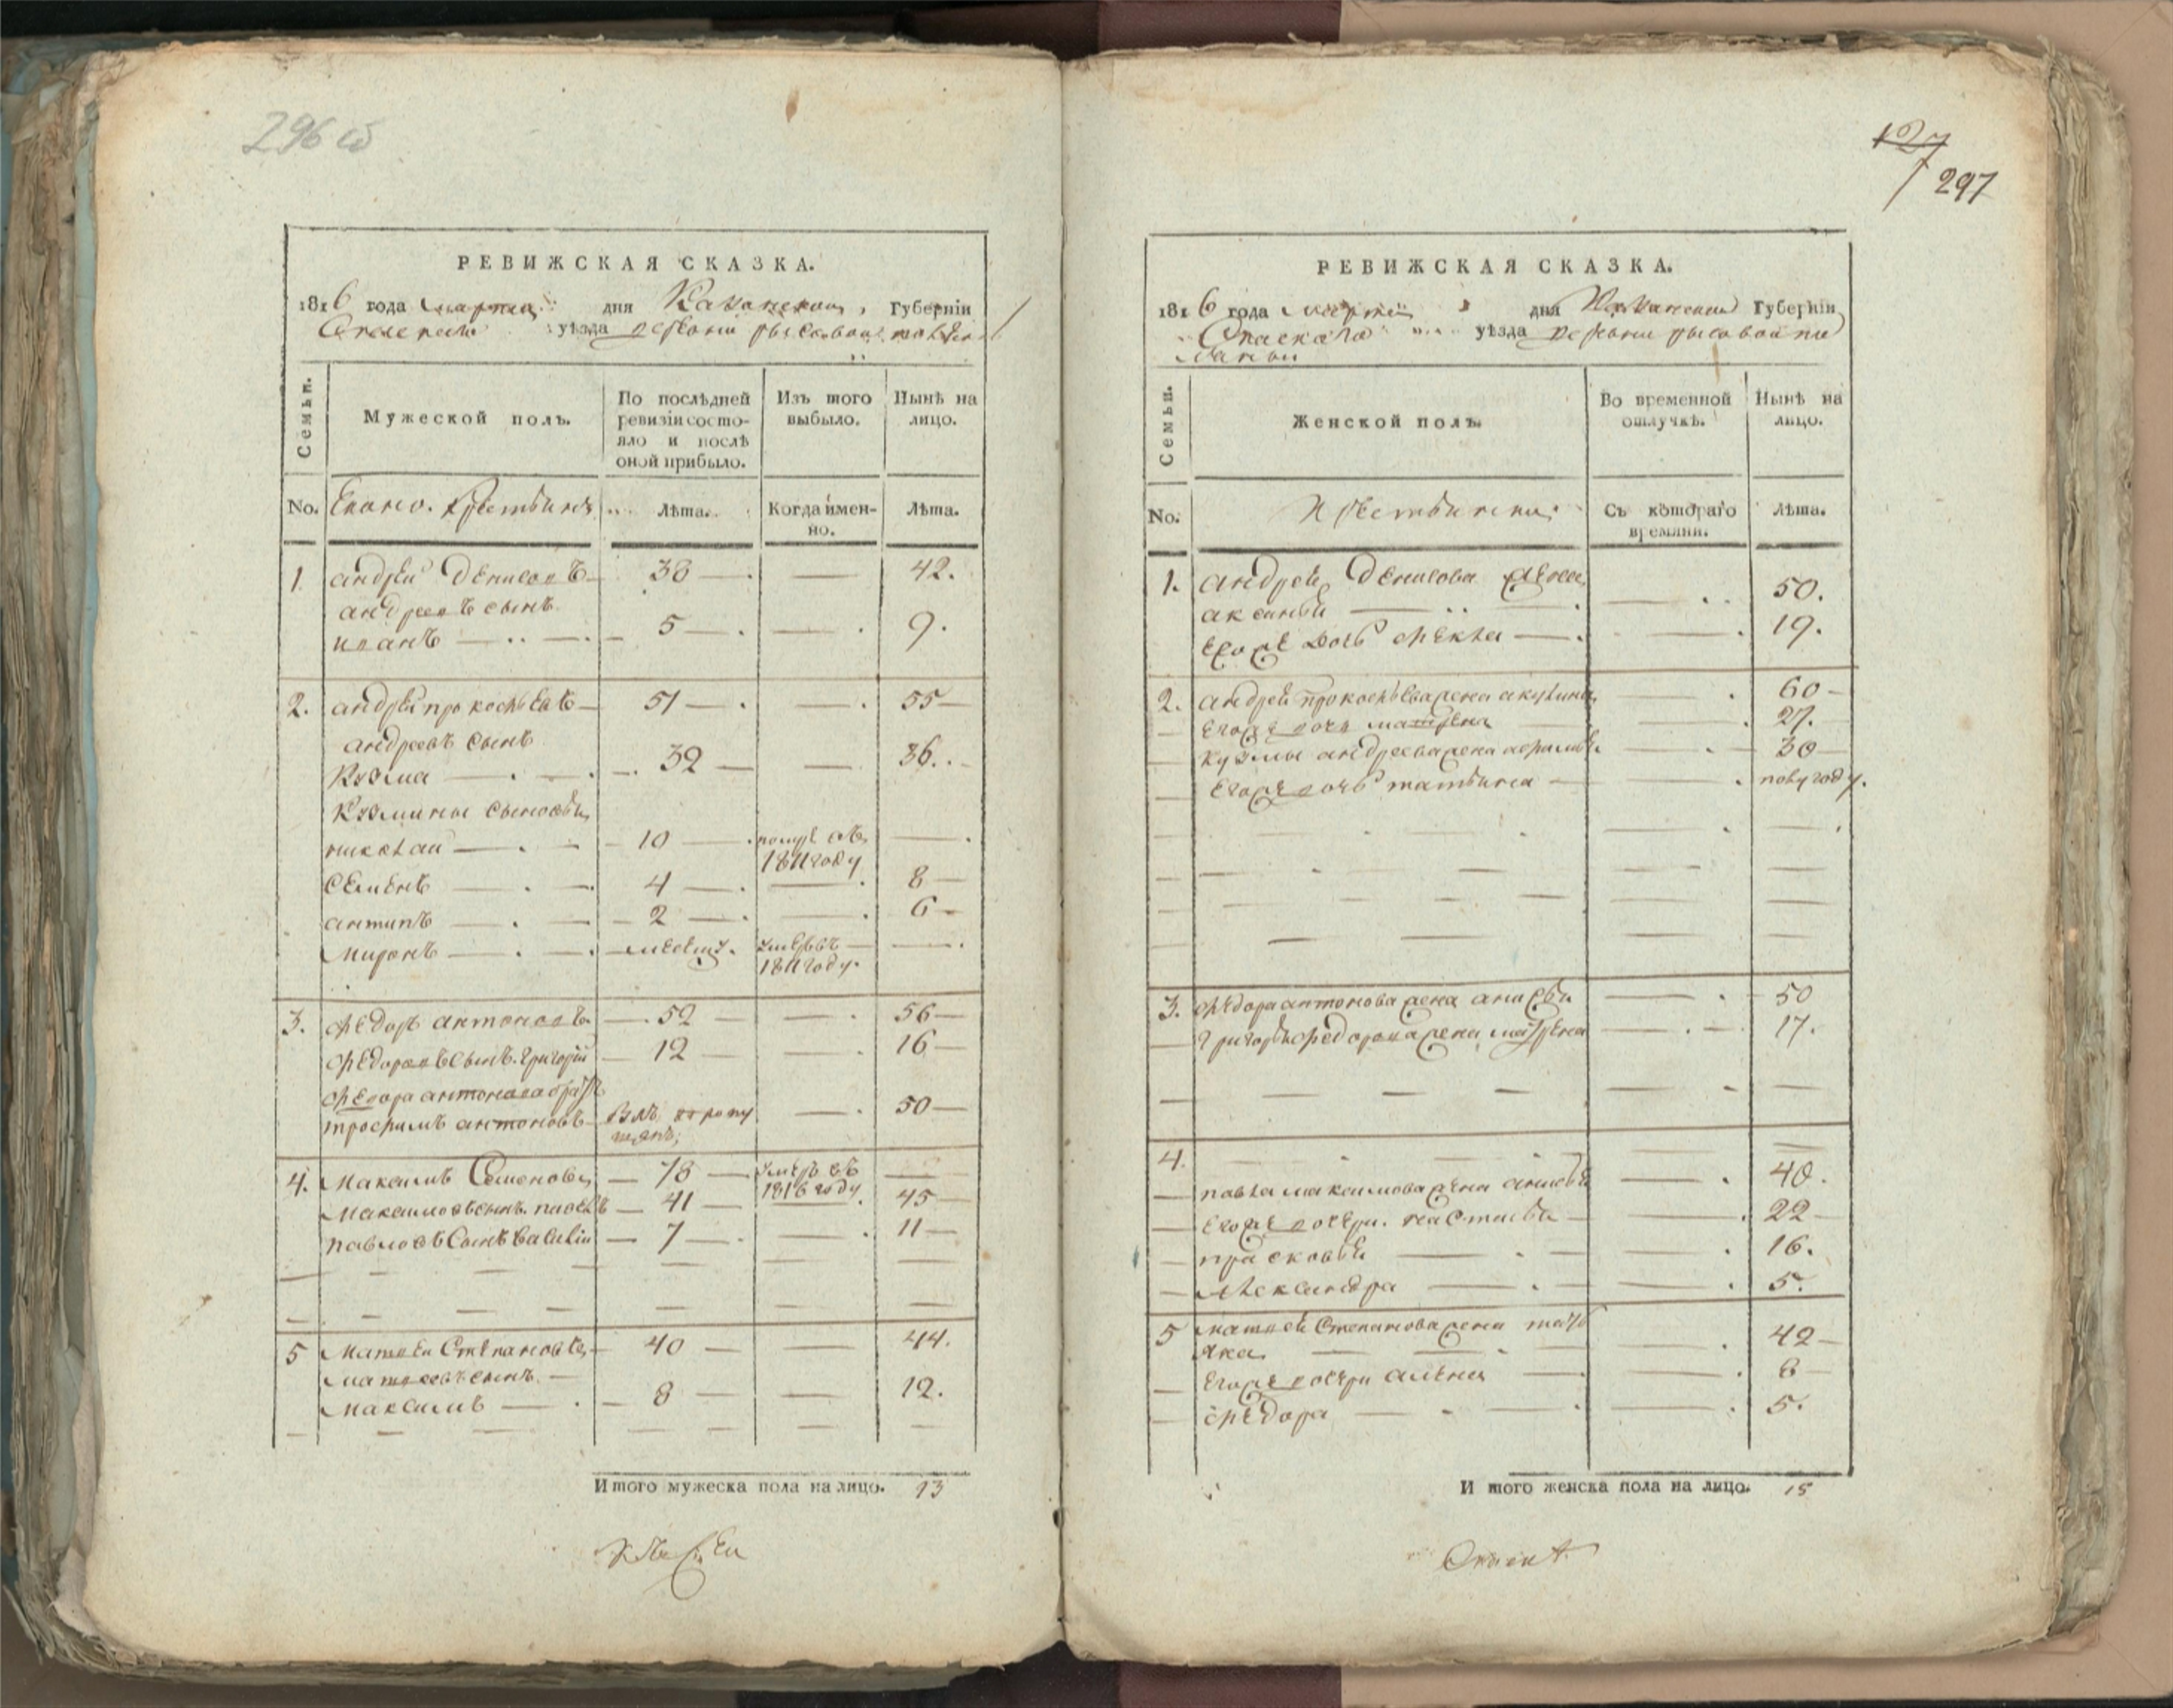 296 об
РЕВИЖСКАЯ СКАЗКА.
1816 года марта дня Казанской Губерніи
Спаскаго уѣзда деревни рысовой поляны
Семьи.
Мужеской полъ.
По послѣдней ревизіи состояло и послѣ оной прибыло.
Изъ того выбыло.
Нынѣ на лицо.
No.
крестьянъ
Лѣта.
Когда имен-
но.
Лѣта.
1 андрей денисовъ 38 — 42.
андреевъ сынъ
иванъ 5 — 9.
2. андрей прокофьевъ 51 — 55
андреевъ сынъ
Кузма 32 — 36.
Кузмины сыновья
николай 10
1811 году
семенъ 4 — 8
антипъ 2 — 6
миронъ месецъ. умеръ въ
1811 году.
3. федоръ антоновъ 52 — 56
федоровъ сынъ григорій 12 — 16
федора антонова братъ
трофимъ антоновъ 50
4. максимъ Семеновъ 78 умеръ въ
1816 году
максимовъ сынъ павелъ 41 — 45
павловъ сынъ василій 7 — 11
5 матвей степановъ 40 — 44.
матвеевъ сынъ
максимъ 8 — 12.
Итого мужеска пола на лицо. 13
127
297
РЕВИЖСКАЯ СКАЗКА.
1816 года марта дня Казанской Губерніи
Спаскаго уѣзда деревни рысовой по
ляны
Семьи.
Женской полъ.
Во временной
отлучкѣ.
Нынѣ на
лицо.
No.
крестьянки
Съ котораго
времяни.
Лѣта.
1. андрея денисова жена
аксинья 50.
егоже дочь фекла 19.
2. андрея прокофьева жена акулина 60
егоже дочь матрена 27.
кузмы андреева жена 30
егоже дочь татьяна полугоду.
3. федора антонова жена анисья 50
григорья федорова жена матрена 17.
4.
павла максимова жена анисья 40.
егоже дочери. настасья 22
прасковья 16.
александра 5.
5 матвея степанова жена
42
егоже дочери алена 8
федора 5.
И того женска пола на лицо. 15